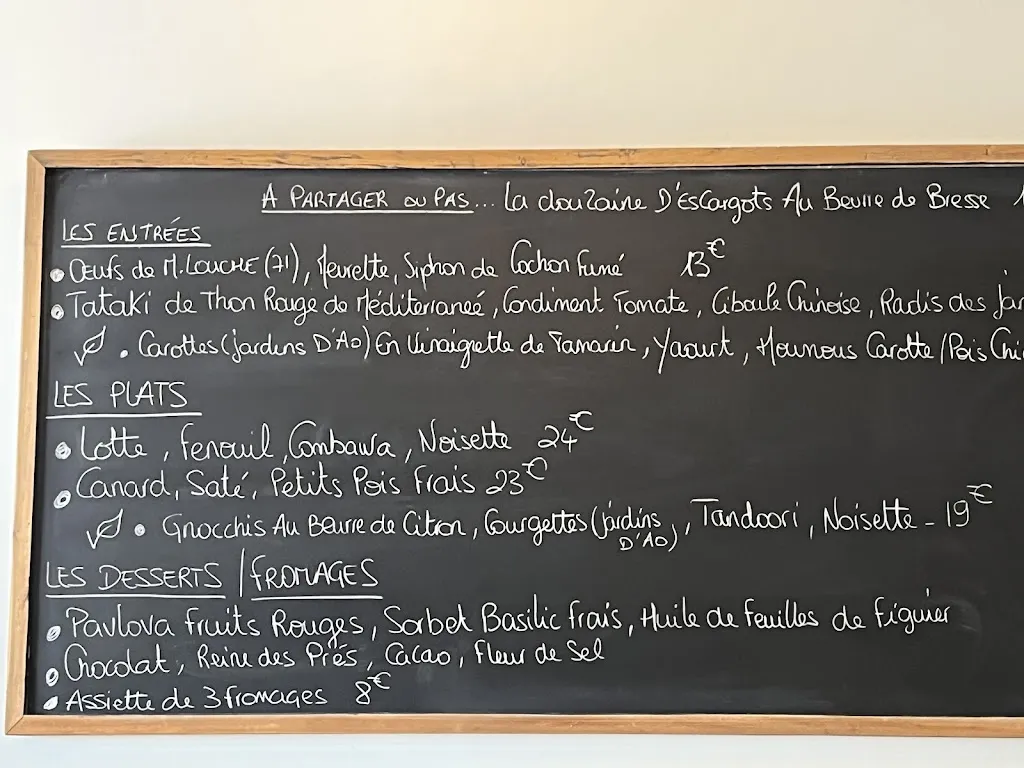 A PARTAGER OU PAS... La douzaine D'Escargots Au Beurre de Bresse
LES ENTRÉES
• Œufs de M. LOUCHE (71), Meurette, Siphon de Cochon Fumé 13€
• Tataki de Thon Rouge de Méditerranée, Condiment Tomate, Ciboule Chinoise, Radis des Jar
• Carottes (jardins D'AO) En Vinaigrette de Tamarin, Yaourt, Houmous Carotte/Pois Chi
LES PLATS
• Lotte, Fenouil, Combawa, Noisette 24€
• Canard, Saté, Petits Pois Frais 23€
• Gnocchis Au Beurre de Citron, Courgettes (jardins D'AO), Tandoori, Noisette - 19€
LES DESSERTS / FROMAGES
• Pavlova Fruits Rouges, Sorbet Basilic frais, Huile de Feuilles de Figuier
• Chocolat, Reine des Prés, Cacao, Fleur de Sel
• Assiette de 3 fromages 8€